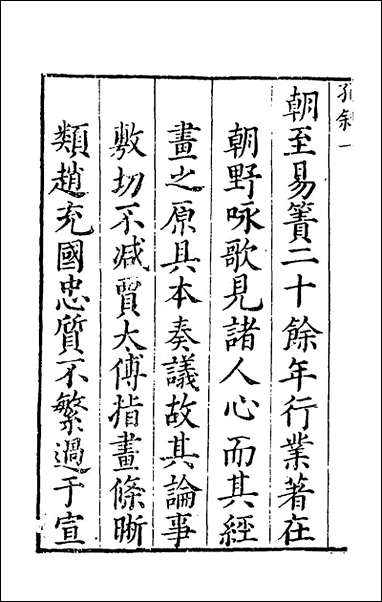 孔叙一
朝至易簀二十餘年行業著在
朝野咏歌見諸人心而其經
畫之原具本奏議故其論事
敷切不减賈太傅指畫條晰
類趙充國忠質不繁過于宣